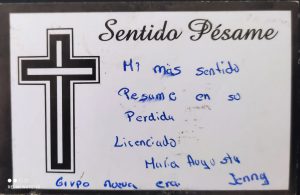 Sentido Pésame
Mi más sentido
Pesame en su
Perdida
Licenciado
María Augusta
Grupo nueva era Jenny